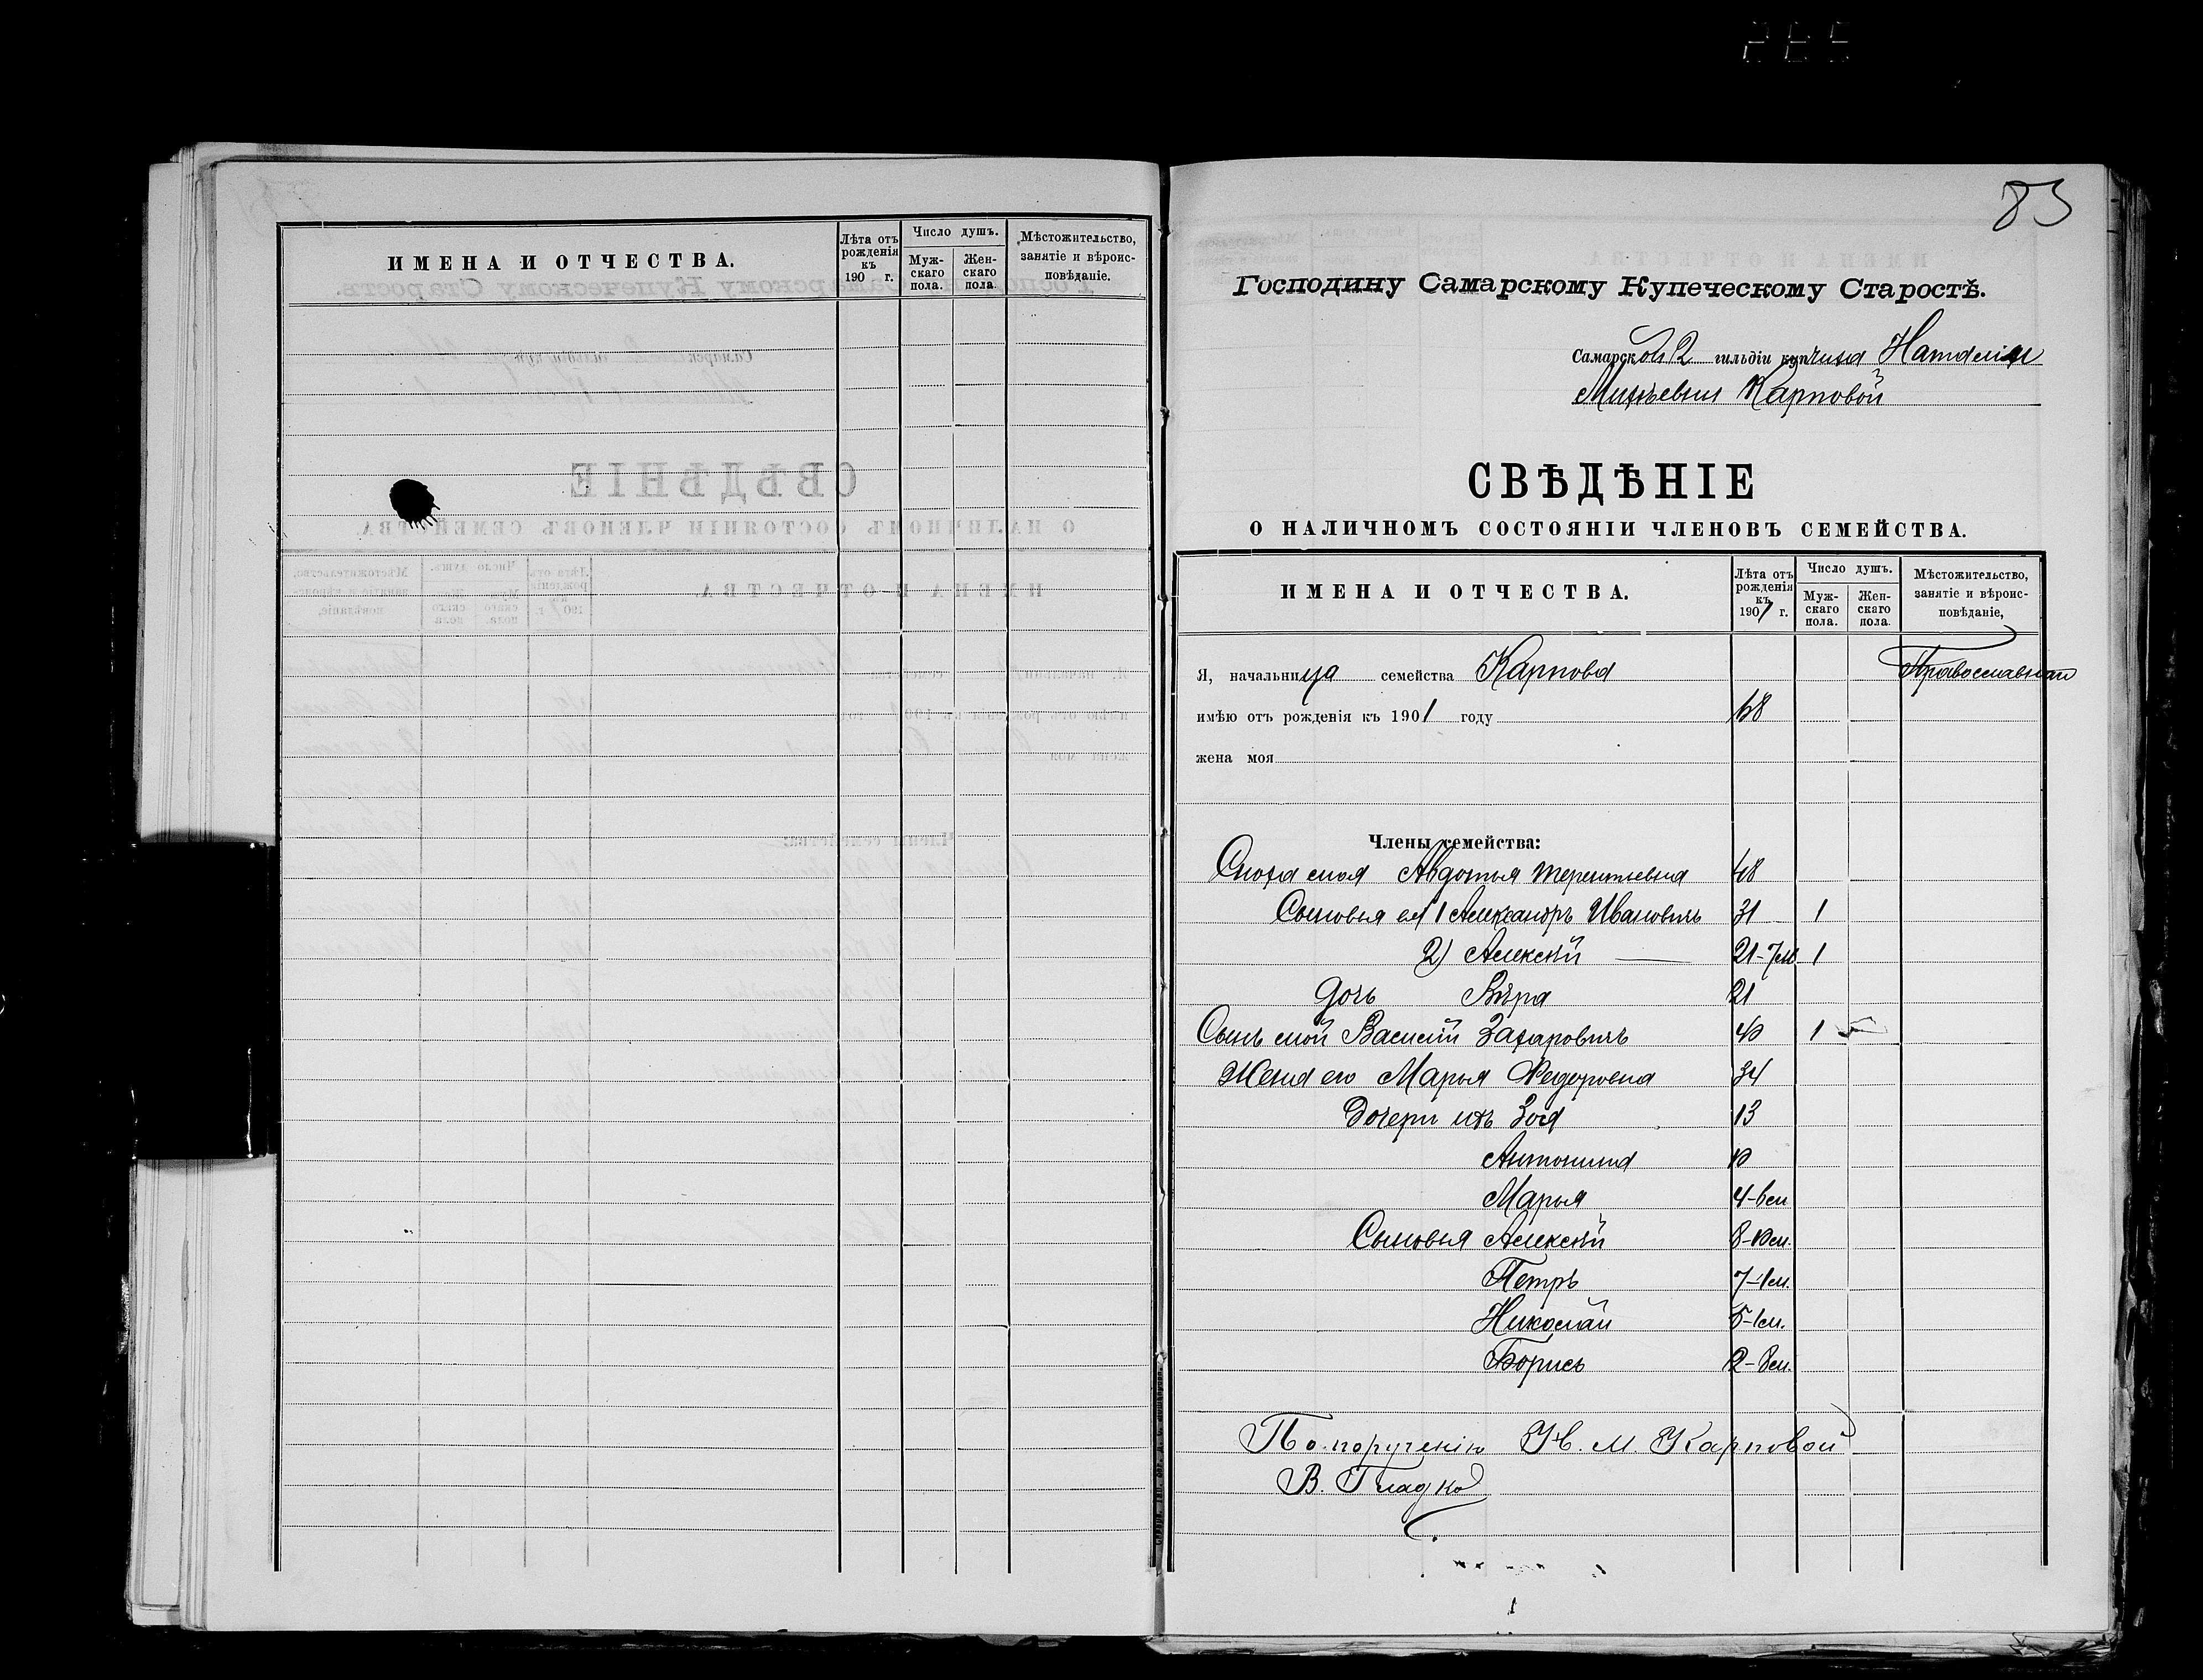 ИМЕНА И ОТЧЕСТВА.
Лѣта отъ рожденія къ 190 г.
Число душъ.
Мужскаго пола.
Женскаго пола.
Мѣстожительство, занятіе и вѣроисповѣданіе.
83
Господину Самарскому Купеческому Старостѣ.
Самарской 2 гильдіи купчихи Наталіи
Михѣевны Карповой
СВѢДѢНІЕ
О НАЛИЧНОМЪ СОСТОЯНІИ ЧЛЕНОВЪ СЕМЕЙСТВА.
ИМЕНА И ОТЧЕСТВА.
Лѣта отъ рожденія къ 1901 г.
Число душъ.
Мужскаго пола.
Женскаго пола.
Мѣстожительство, занятіе и вѣроисповѣданіе,
Я, начальница семейства Карпова Православная
имѣю отъ рожденія къ 1901 году 68
жена моя
Члены семейства:
Сноха моя Авдотья Терентьевна 48
Сыновья ея 1 Александръ Ивановичъ 31 1
2) Алексѣй — 21-7м 1
Дочь Вѣра 21
Сынъ мой Василій Захаровичъ 40 1
Жена его Марья Федоровна 34
Дочери ихъ Зоя 13
Антонина 10
Марья 4-6м
Сыновья Алексѣй 8-10м.
Петръ 7-1м.
Николай 5-1м.
Борисъ 2-8м.
По порученію Н. М. Карповой
В. Гладко